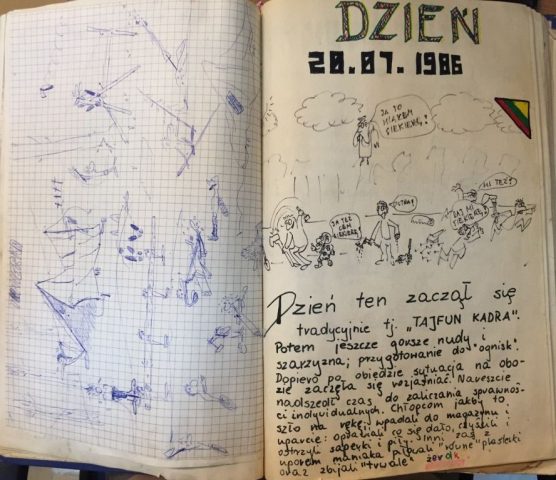 DZIEŃ
20.07.1986
JA TO MIAŁEM SIEKIERĘ!
JA TEŻ CEM SIEKIERĘ
PIŁRA!
DAJ MI SIEKIERĘ!
MI TEŻ!
Dzień ten zaczął się
tradycyjnie tj. „TAJFUN KADRA".
Potem jeszcze gorsze nudy i
szarzyzna; przygotowanie do "ognisk".
Dopiero po obiedzie sytuacja na obo-
zie zaczęła się rozjaśniać. Nareszcie
nadszedł czas do zaliczania sprawnoś-
ci indywidualnych. Chłopcom jakby to
szło na rękę, wpadali do magazynu i
uparcie: opylali co się dało, czyścili i
ostrzyli saperki i piły. Inni zaś z
uporem maniaka piłowali "równe" plasterki
oraz zbijali "trwałe" żerdki.